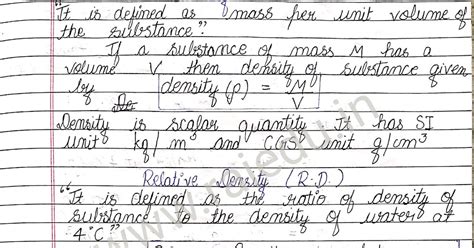 "It is defined as mass per unit volume of
the substance".
If a substance of mass M has a
volume V then density of substance given
by density (ρ) = M/V
Density is scalar quantity It has SI
unit kg/m³ and CGS unit g/cm³
Relative Density (R.D.)
"It is defined as the ratio of density of
substance to the density of water at
4°C"